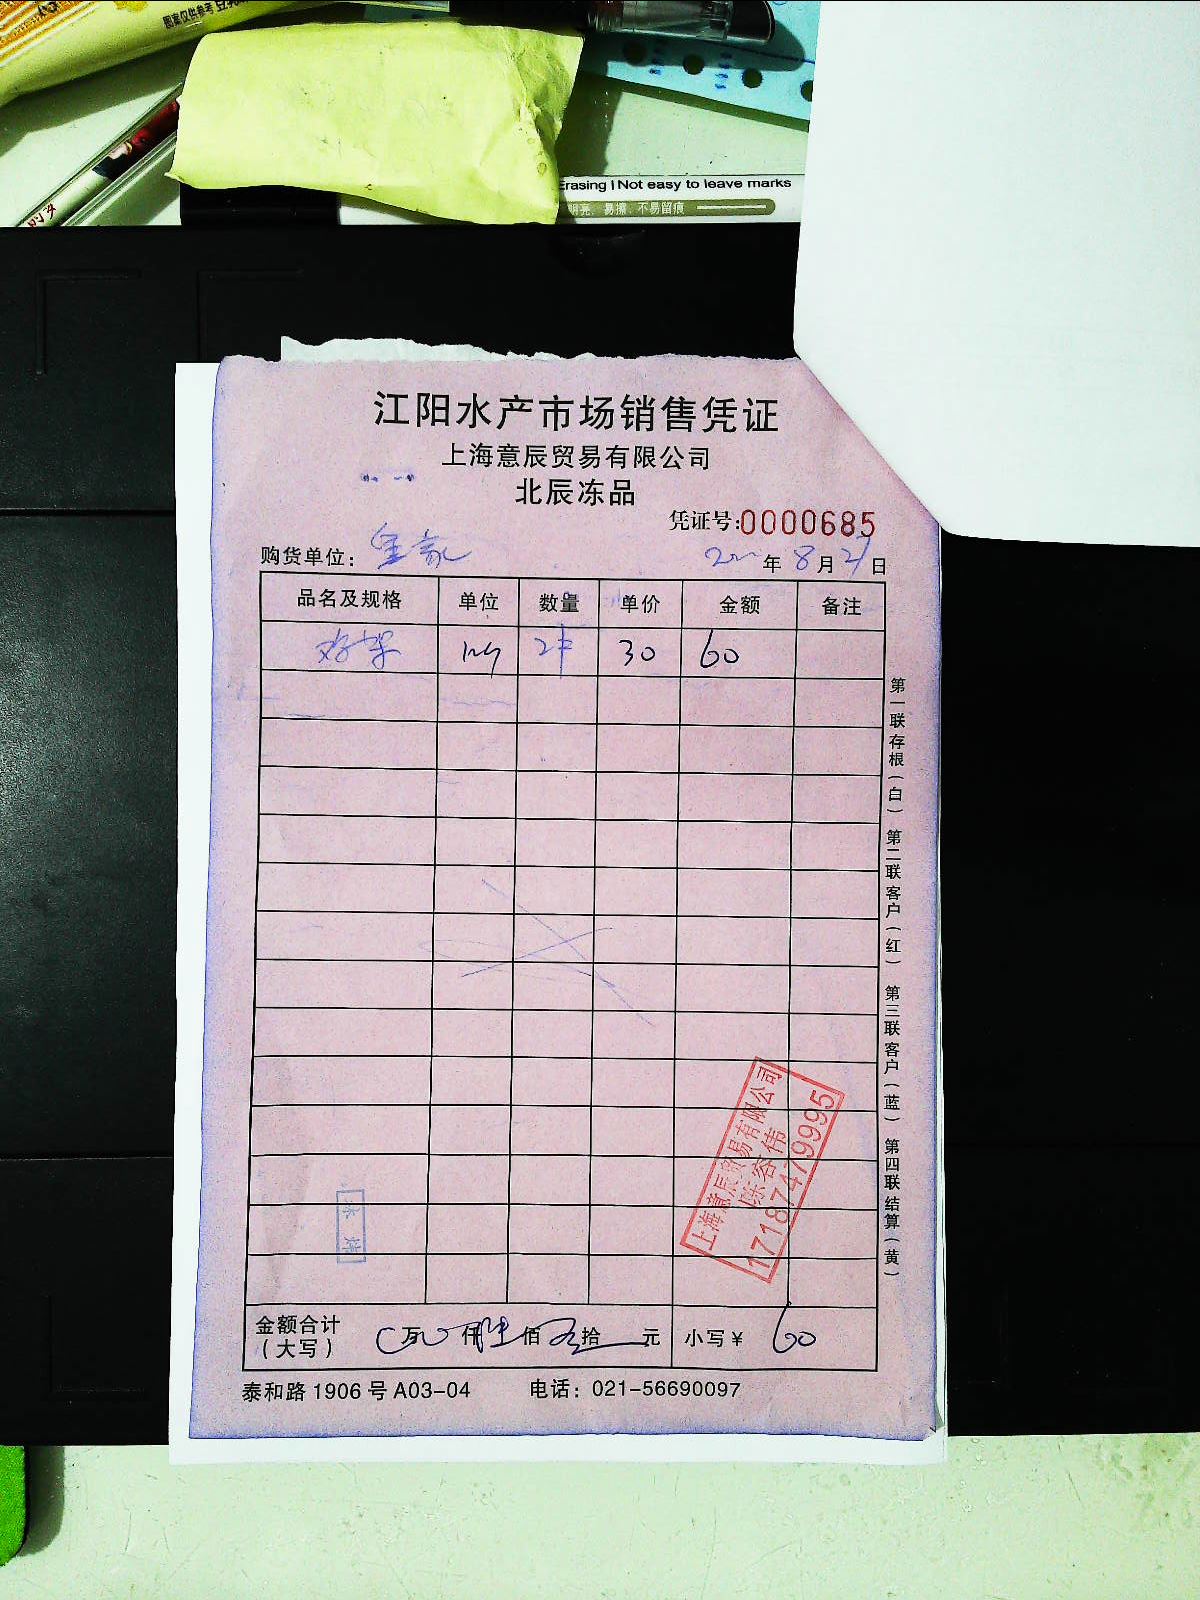 图案仅供参考
Erasing | Not easy to leave marks
明亮、易擦、不易留痕
江阳水产市场销售凭证
上海意辰贸易有限公司
北辰冻品
凭证号:0000685
购货单位: 年 8 月 21 日
品名及规格 单位 数量 单价 金额 备注
鸡架 2件 30 60
第一联存根（白） 第二联客户（红） 第三联客户（蓝） 第四联结算（黄）
上海意辰贸易有限公司
陈容伟
17187479995
金额合计（大写） 万 仟 佰 拾 元 小写￥ 60
泰和路1906号A03-04 电话：021-56690097